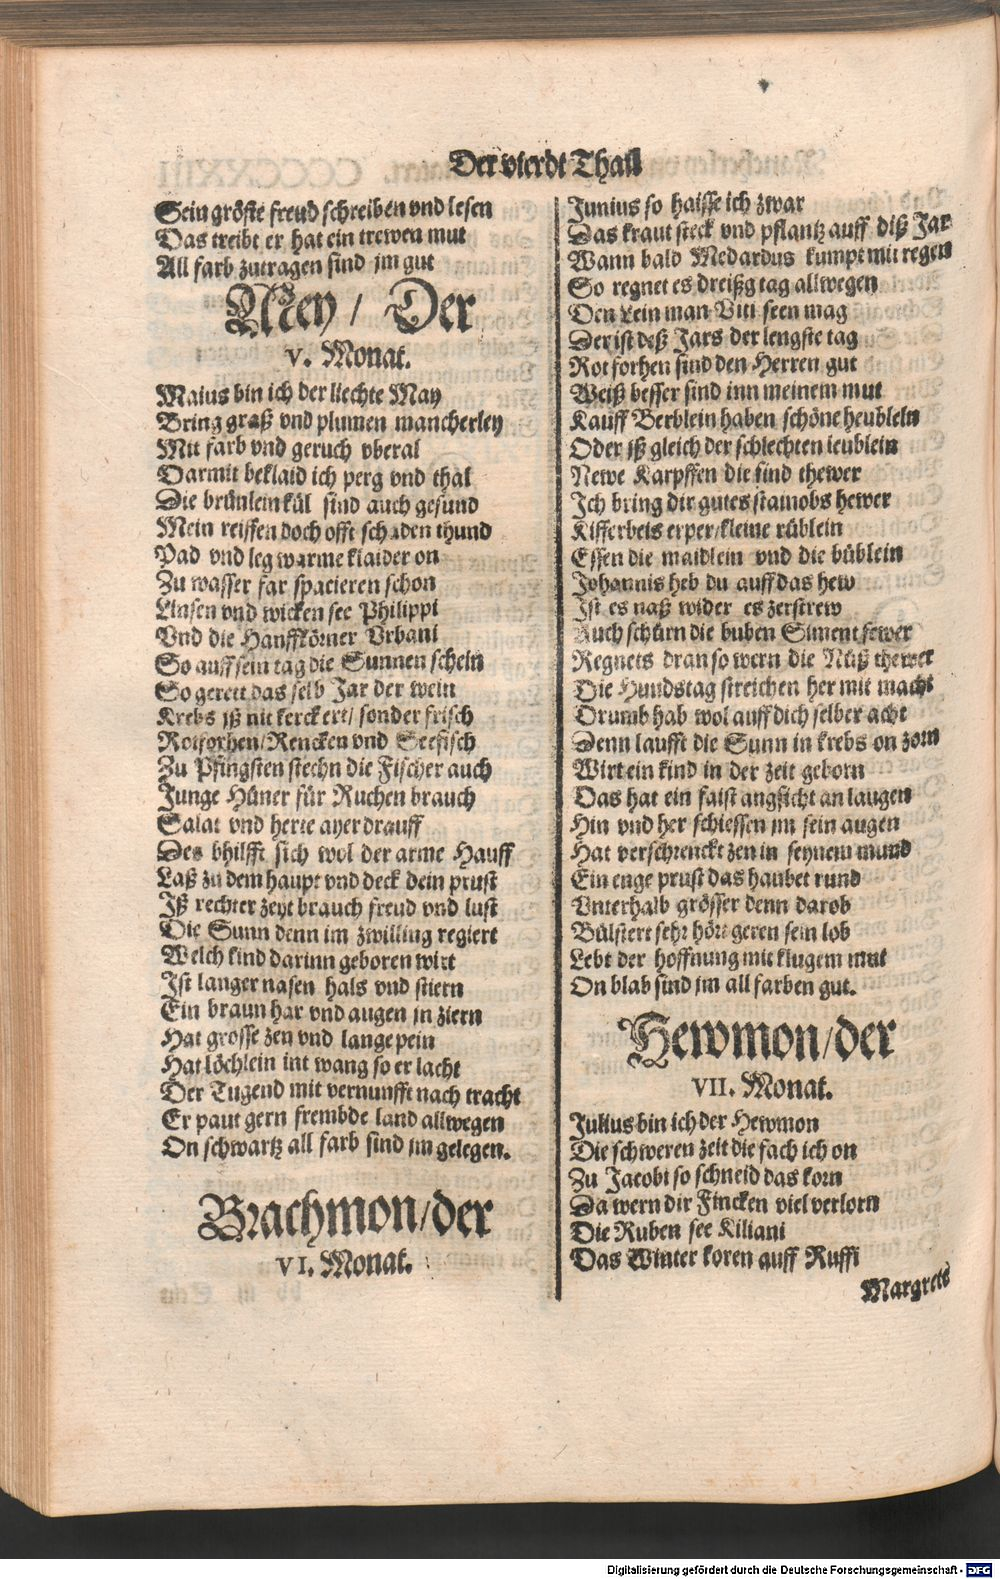 Der vierdt Thail
Sein gröste freud schreiben vnd lesen
Das treibt er hat ein trewen mut
All farb zutragen sind jm gut
Mey / Der
V. Monat.
Maius bin ich der liechte May
Bring graß vnd plumen mancherley
Mit farb vnd geruch vberal
Darmit beklaid ich perg vnd thal
Die brünlein kül sind auch gesund
Mein reiffen doch offt schaden thund
Pad vnd leg warme klaider on
Zu wasser far spacieren schon
Linsen vnd wicken see Philippi
Vnd die Hanffkörner Vrbani
So auff sein tag die Sunnen schein
So gerett das selb Jar der wein
Krebs iß nit kerckert / sonder frisch
Rotforhen / Rencken vnd Seefisch
Zu Pfingsten stechn die Fischer auch
Junge Hüner für Ruchen brauch
Salat vnd herte ayer drauff
Des bhilfft sich wol der arme Hauff
Laß zu dem haupt vnd deck dein prust
Iß rechter zeyt brauch freud vnd lust
Die Sunn denn im zwilling regiert
Welch kind darinn geboren wirt
Ist langer nasen hals vnd stiern
Ein braun har vnd augen in ziern
Hat grosse zen vnd lange pein
Hat löchlein int wang so er lacht
Der Tugend mit vernunfft nach tracht
Er paut gern frembde land allwegen
On schwartz all farb sind jm gelegen.
Brachmon / der
VI. Monat.
Junius so haisse ich zwar
Das kraut steck vnd pflantz auff diß Jar
Wann bald Medardus kumpt mit regen
So regnet es dreißg tag allwegen
Den Lein man Viti seen mag
Der ist deß Jars der lengste tag
Rotforhen sind den Herren gut
Weiß besser sind inn meinem mut
Kauff Berblein haben schöne heublein
Oder iß gleich der schlechten leublein
Newe Karpffen die sind thewer
Ich bring dir gutes stainobs hewer
Kifferbeis erper / kleine rüblein
Essen die maidlein vnd die büblein
Johannis heb du auff das hew
Ist es naß wider es zerstrew
Auch schürn die buben Siment fewer
Regnets dran so wern die Nüß thewer
Die Hundstag streichen her mit macht
Drumb hab wol auff dich selber acht
Denn laufft die Sunn in krebs on zorn
Wirt ein kind in der zeit geborn
Das hat ein faist angsicht an laugen
Hin vnd her schiessen im sein augen
Hat verschrenckt zen in seynem mund
Ein enge prust das haubet rund
Vnterhalb grösser denn darob
Bülstert sehr hört geren sein lob
Lebt der hoffnung mit klugem mut
On blab sind jm all farben gut.
Hewmon / der
VII. Monat.
Julius bin ich der Hewmon
Die schweren zeit die fach ich on
Zu Jacobi so schneid das korn
Da wern dir Fincken viel verlorn
Die Ruben see Kiliani
Das Winter koren auff Ruffi
Margrets
Digitalisierung gefördert durch die Deutsche Forschungsgemeinschaft - DFG